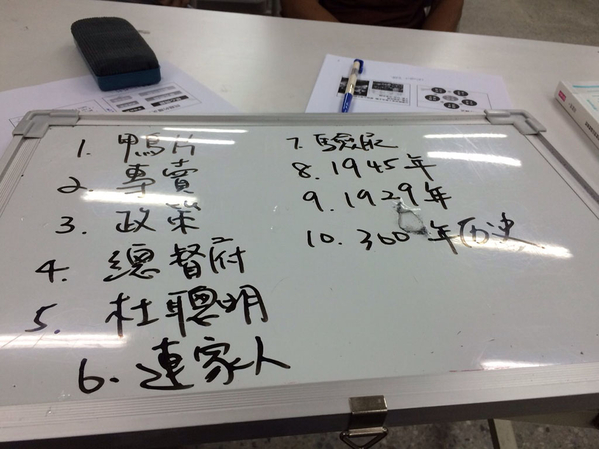 1. 鴉片
2. 專賣
3. 政策
4. 總督府
5. 杜聰明
6. 連家人
7. 驗尿
8. 1945年
9. 1929年
10. 300年历史